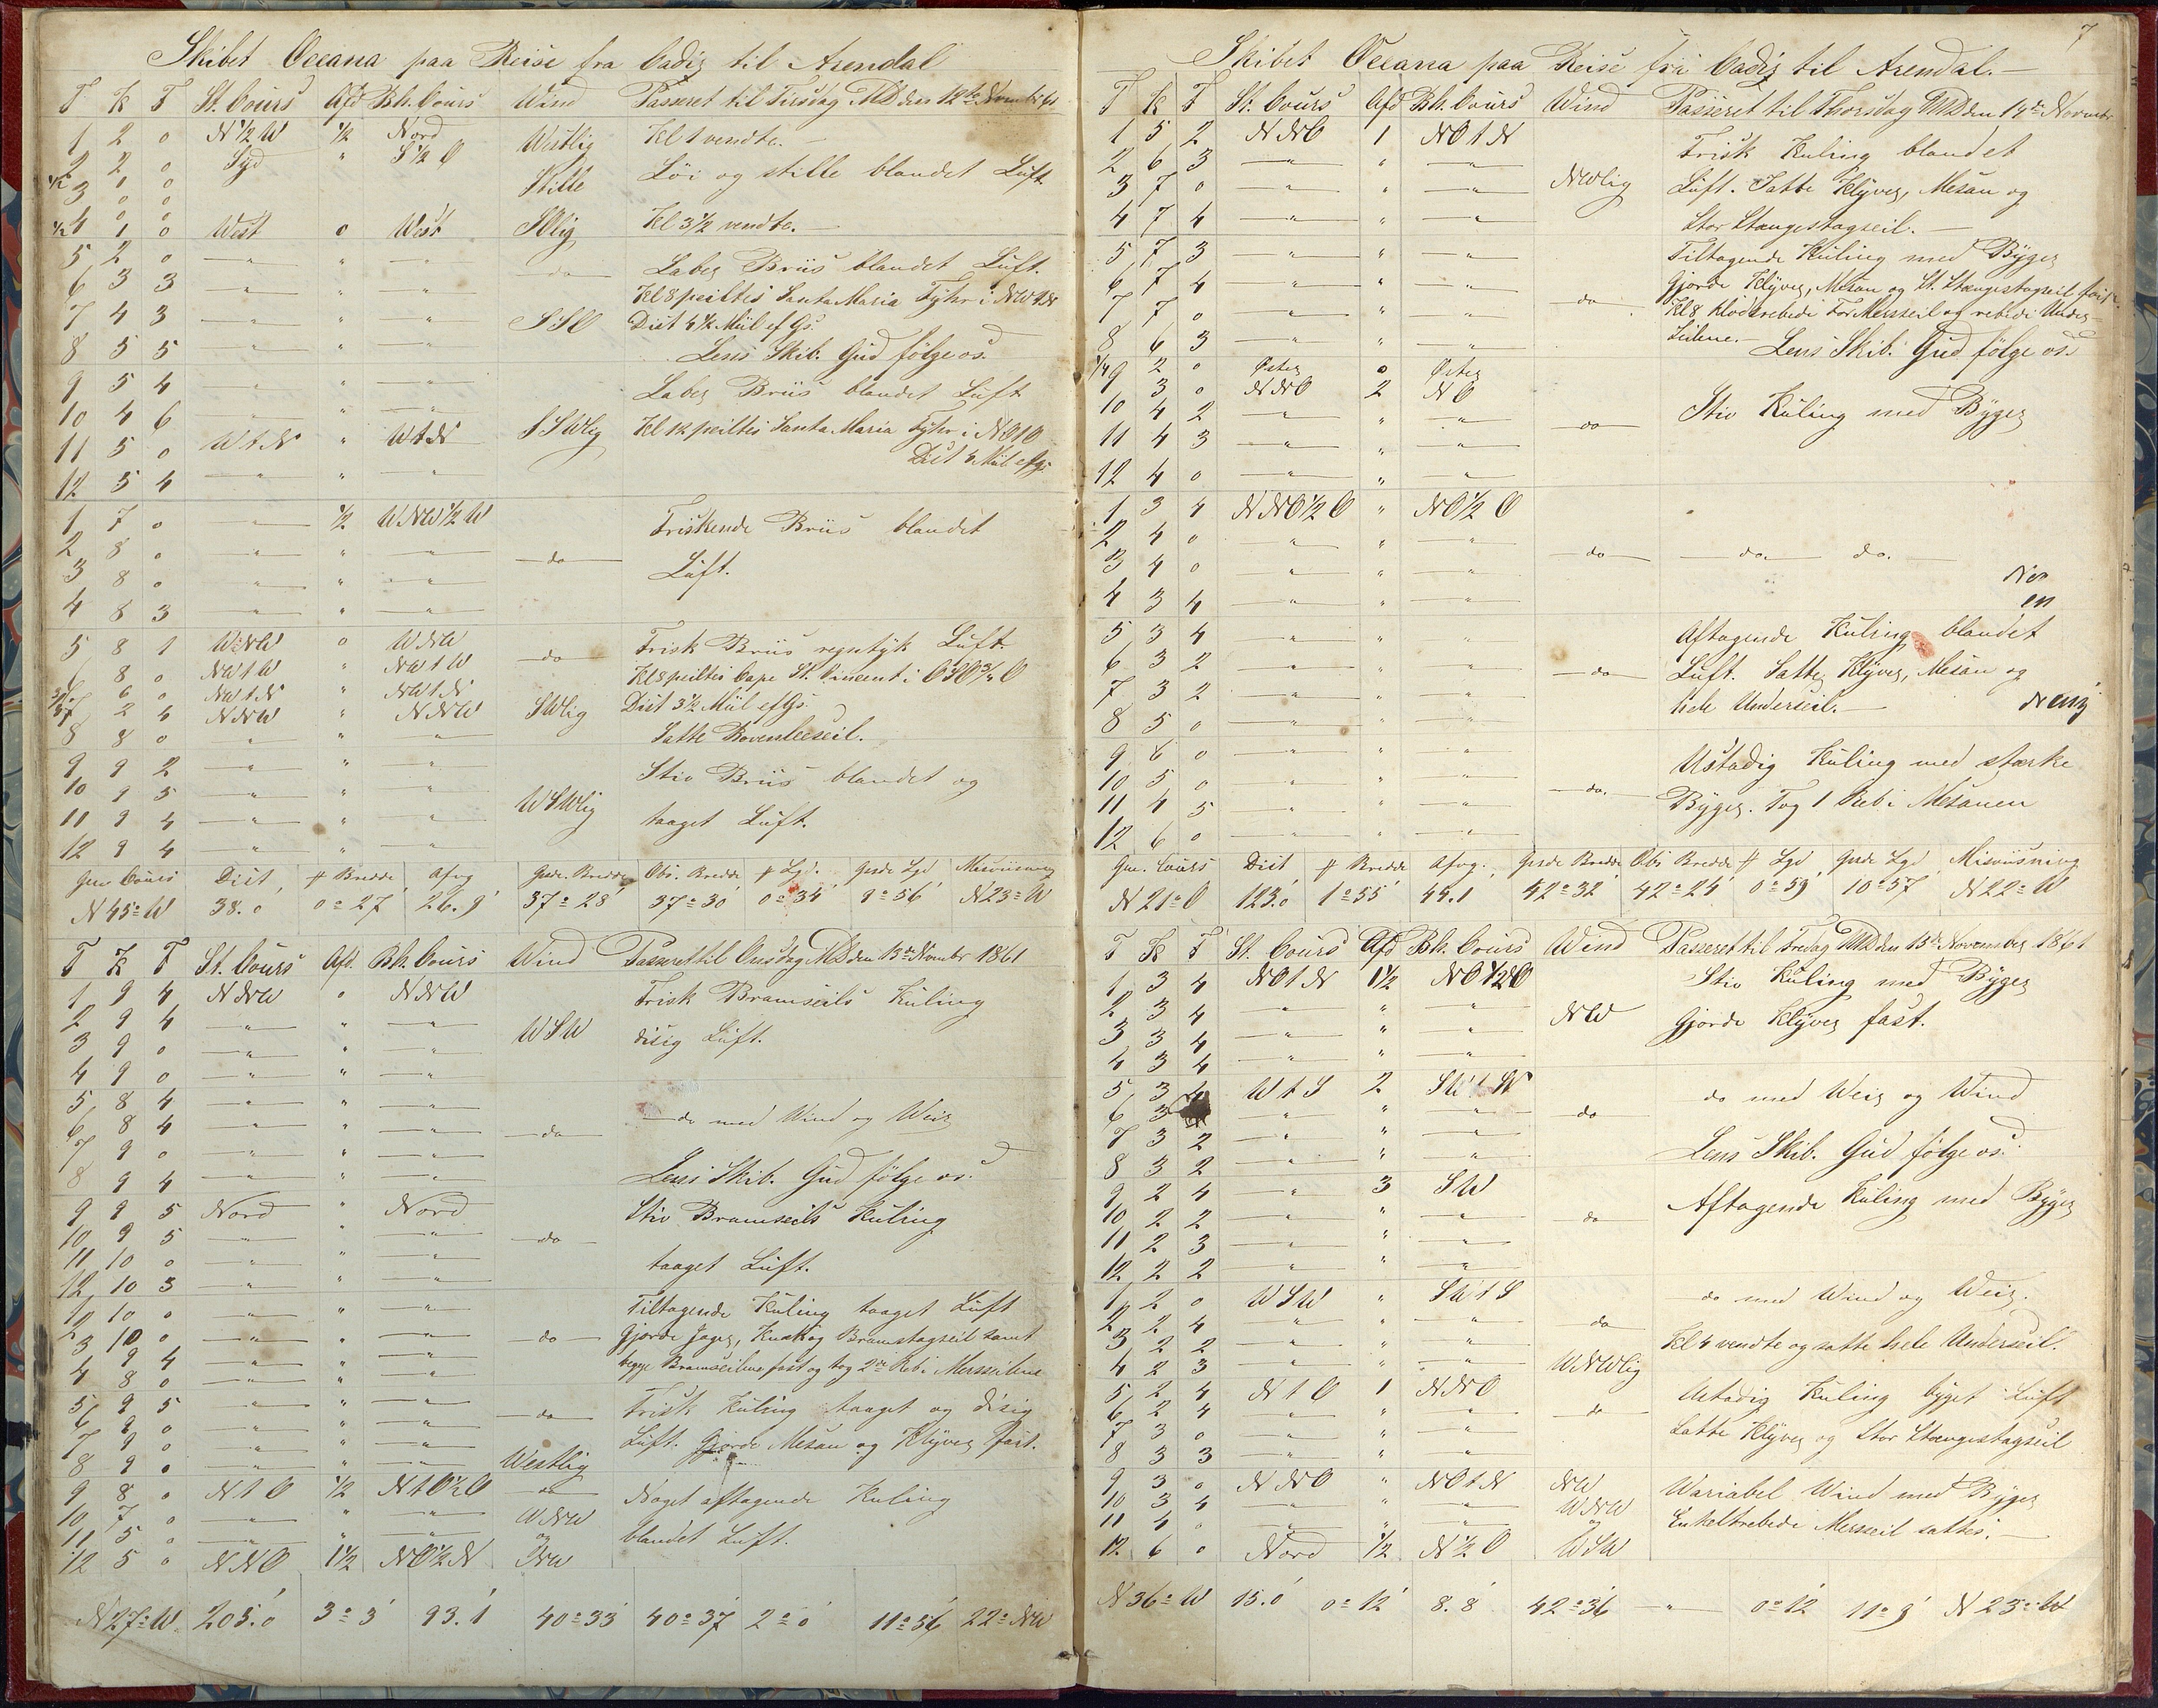 Skibet Oceana paa Reise fra Cadiz til Arendal
T K T St. Cours Afd Bh. Cours Wind Passeret til Tirsdag MD den 12te Novembr 61
1 2 0 N 1/2 W 1/2 Nord Westlig Kl 1 vendte.
2 2 0 Syd " S 1/2 O Löi og stille blandet Luft
1/2 3 1 0 Stille
0 0
4 0 0
1/2 4 1 0 West 0 West SOlig Kl 3 1/2 vendte.
5 2 0 " " " do Laber Briis blandet Luft.
6 3 3 " " " Kl 8 peiltes Santa Maria Fyhr i NW t N
7 4 3 " " " SSO Dist 4 1/2 Miil ef Gs.
8 5 5 " " " Lens Skib. Gud fölge os.
9 5 4 " " " Laber Briis blandet Luft
10 4 6 " " " SSWlig Kl 12 peiltes Santa Maria Fyhr i NO t O
11 5 0 W t N " W t N Dist 4 Miil ef Gs.
12 5 4 " " "
1 7 0 " 1/2 WNW 1/2 W Friskende Briis blandet
2 8 0 " " " do Luft.
3 8 0 " " "
4 8 3 " " "
5 8 1 WNW 0 WNW do Frisk Briis regntyk Luft.
6 8 0 NW t W " NW t W Kl 8 peiltes Cape St. Vincent i OSO 3/4 O
3/4 7 6 0 NW t N " NW t N SWlig Dist 3 1/2 Miil ef Gs.
1/4 7 2 4 NNW " NNW
8 8 0 " " " Satte Bovenleeseil.
9 9 2 " " " Stiv Briis blandet og
10 9 5 " " " WSWlig
11 9 4 " " " taaget Luft.
12 9 4 " " "
Gen Cours Dist # Bredde Afvg Gisde. Bredde Obs. Bredde # Lgd. Gisde Lgd Misviisning
N 45° W 38.0 0° 27' 26.9' 37° 28' 37° 30' 0° 34' 9° 56' N 23° W
T K T St. Cours Afd. Bh. Cours Wind Passeret til Onsdag MD den 13de Novembr 1861
1 9 4 NNW 0 NNW Frisk Bramseils Kuling
2 9 4 " " " WSW disig Luft.
3 9 0 " " "
4 9 0 " " "
5 8 4 " " "
6 8 4 " " " do do med Wind og Weir
7 9 0 " " "
8 9 4 " " " Lens Skib. Gud fölge os.
9 9 5 Nord " Nord Stiv Bramseils Kuling
10 9 5 " " " do
11 10 0 " " " taaget Luft.
12 10 3 " " "
1 10 0 " " " Tiltagende Kuling taaget Luft
2 10 0 " " " do Gjorde Jager, Knæk og Bramstagseil samt
3 9 4 " " " begge Bramseilene fast og tog 2de Reb i Mersseilene
4 8 0 " " "
5 9 5 " " " do Frisk Kuling taaget og disig
6 9 0 " " " Luft. Gjorde Mesan og Klyver fast.
7 9 0 " " "
8 9 0 " " " Westlig
9 8 0 N t O 1/2 N t O 1/2 O do Noget aftagende Kuling
10 7 0 " " " WNW
11 5 0 " " " og blandet Luft.
12 5 0 NNO 1 1/2 NO 1/2 N NW
N 27° W 205.0 3° 3' 93.1' 40° 33' 40° 37' 2° 0' 11° 56' 22° NW
7
Skibet Oceana paa Reise fra Cadiz til Arendal.
T K T St. Cours Afd Bh. Cours Wind Passeret til Thorsdag MD den 14de Novembr
1 5 2 NNO 1 NO t N Frisk Kuling blandet
2 6 3 " " " NWlig Luft. Satte Klyver, Mesan og
3 7 0 " " "
4 7 4 " " " Stor Stængestagseil.
5 7 3 " " " Tiltagende Kuling med Byger
6 7 4 " " " do Gjorde Klyver, Mesan og St. Stængestagseil fast.
7 7 0 " " " Kl 8 klodsrebede For Mersseil og rebede Under-
8 6 3 " " " Seilene. Lens Skib. Gud fölge os.
1/4 9 2 0 Öster 0 Öster
3 0 NNO 2 NO
10 4 2 " " " do Stiv Kuling med Byger
11 4 3 " " "
12 4 0 " " "
1 3 4 NNO 1/2 O " NO 1/2 O
2 4 0 " " " do do do.
3 4 0 " " "
4 3 4 " " "
5 3 4 " " " Aftagende Kuling blandet
6 3 2 " " " do Luft. Satte Klyver, Mesan og
7 3 2 " " " hele Underseil.
8 5 0 " " "
9 6 0 " " " Ustadig Kuling med stærke
10 5 0 " " " do.
11 4 5 " " " Byger. Tog 1 Reb i Mesanen
12 6 0 " " "
Gen. Cours Dist # Bredde Afvg. Gisde Bredde Obs Bredde # Lgd Gisde Lgd Misviisning
N 21° O 123.0 1° 55' 44.1 42° 32' 42° 24' 0° 59' 10° 57' N 22° W
T K T St. Cours Afd Bh. Cours Wind Passeret til Fredag MD den 15de November 1861
1 3 4 NO t N 1 1/2 NO 1/2 O Stiv Kuling med Byger
2 3 4 " " " NW Gjorde Klyver fast.
3 3 4 " " "
4 3 4 " " "
5 3 4 W t S 2 SW t W do med Weir og Wind
6 3 " " " do
7 3 2 " " " Lens Skib. Gud fölge os.
8 3 2 " " "
9 2 4 " 3 SW Aftagende Kuling med Byger
10 2 2 " " " do
11 2 3 " " "
12 2 2 " " "
1 2 0 WSW " SW t S do med Wind og Weir.
2 2 4 " " " do
3 2 2 " " " Kl 4 vendte og satte hele Underseil.
4 2 3 " " " WNWlig
5 2 4 N t O 1 NNO Ustadig Kuling byget Luft
6 2 4 " " " do
7 3 0 " " " Satte Klyver og Stor Stængestagseil
8 3 3 " " "
9 3 0 NNO " NO t N NW Wariabel Wind med Byger
10 3 4 " " " WNW
11 4 0 " " " og Enkeltrebede Mersseil sattes.
12 6 0 Nord 1/2 N 1/2 O WSW
N 36° W 15.0' 0° 12' 8.8' 42° 36' " 0° 12' 11° 9' N 23° W